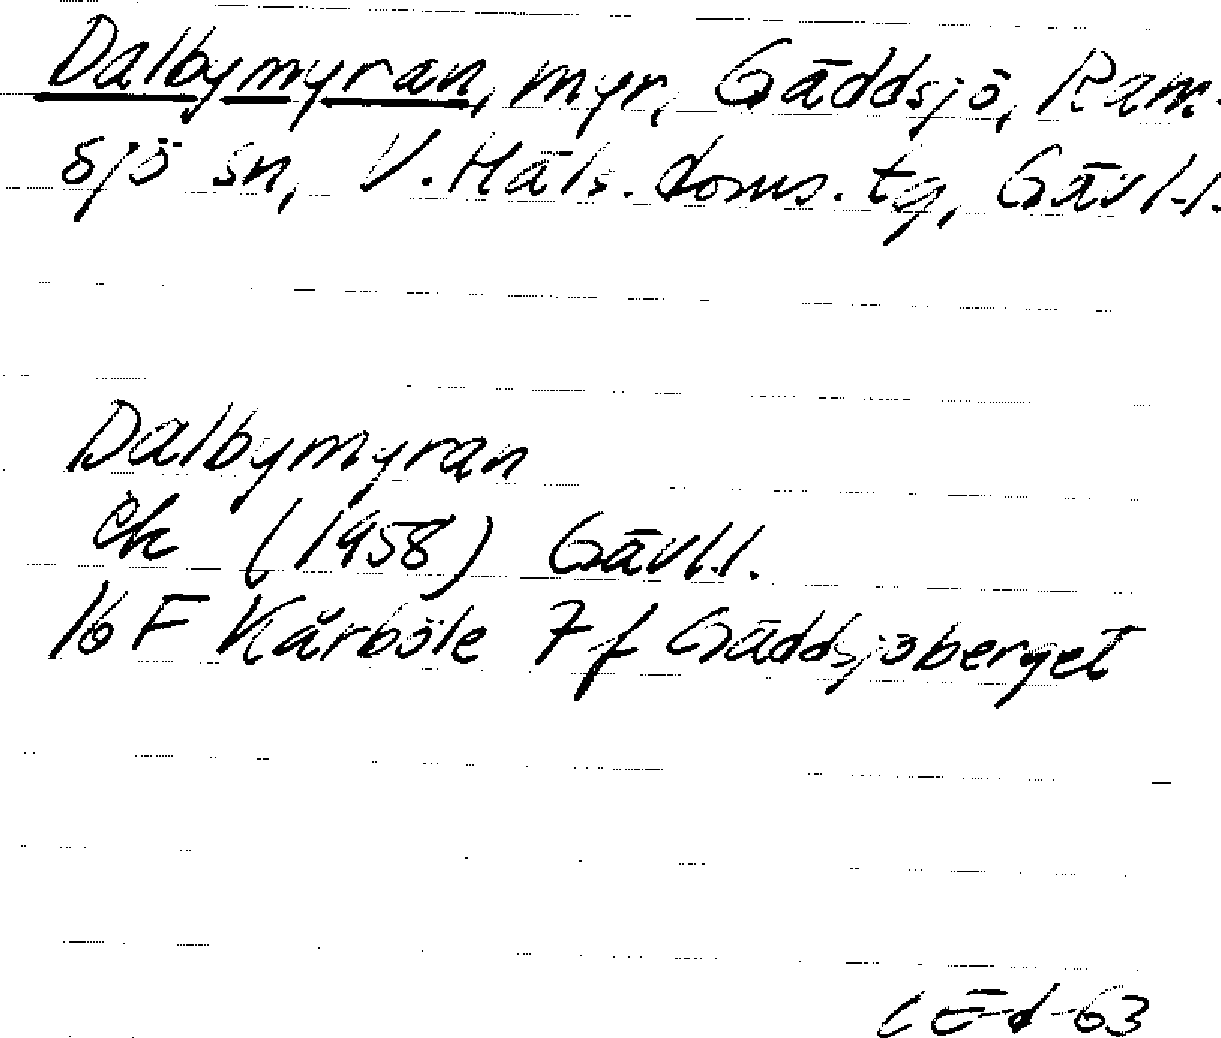 Dalbymyran, myr, Gäddsjö, Ram-
sjö sn, V. Häls. doms. tg, Gävl.l.
Dalbymyran
ek (1958) Gävl.l.
16 F Kårböle 7 f Gäddsjöberget
CÖ-d-63